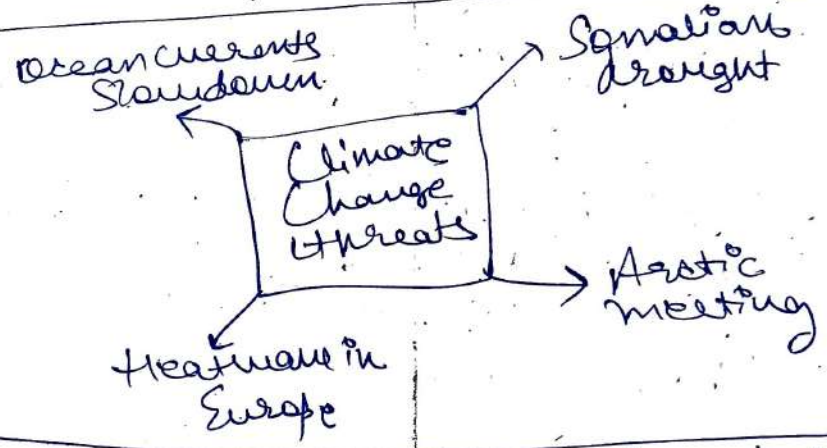 Ocean currents
Slowdown
Somalian
drought
Climate
Change
threats
Arctic
meeting
Heatwave in
Europe